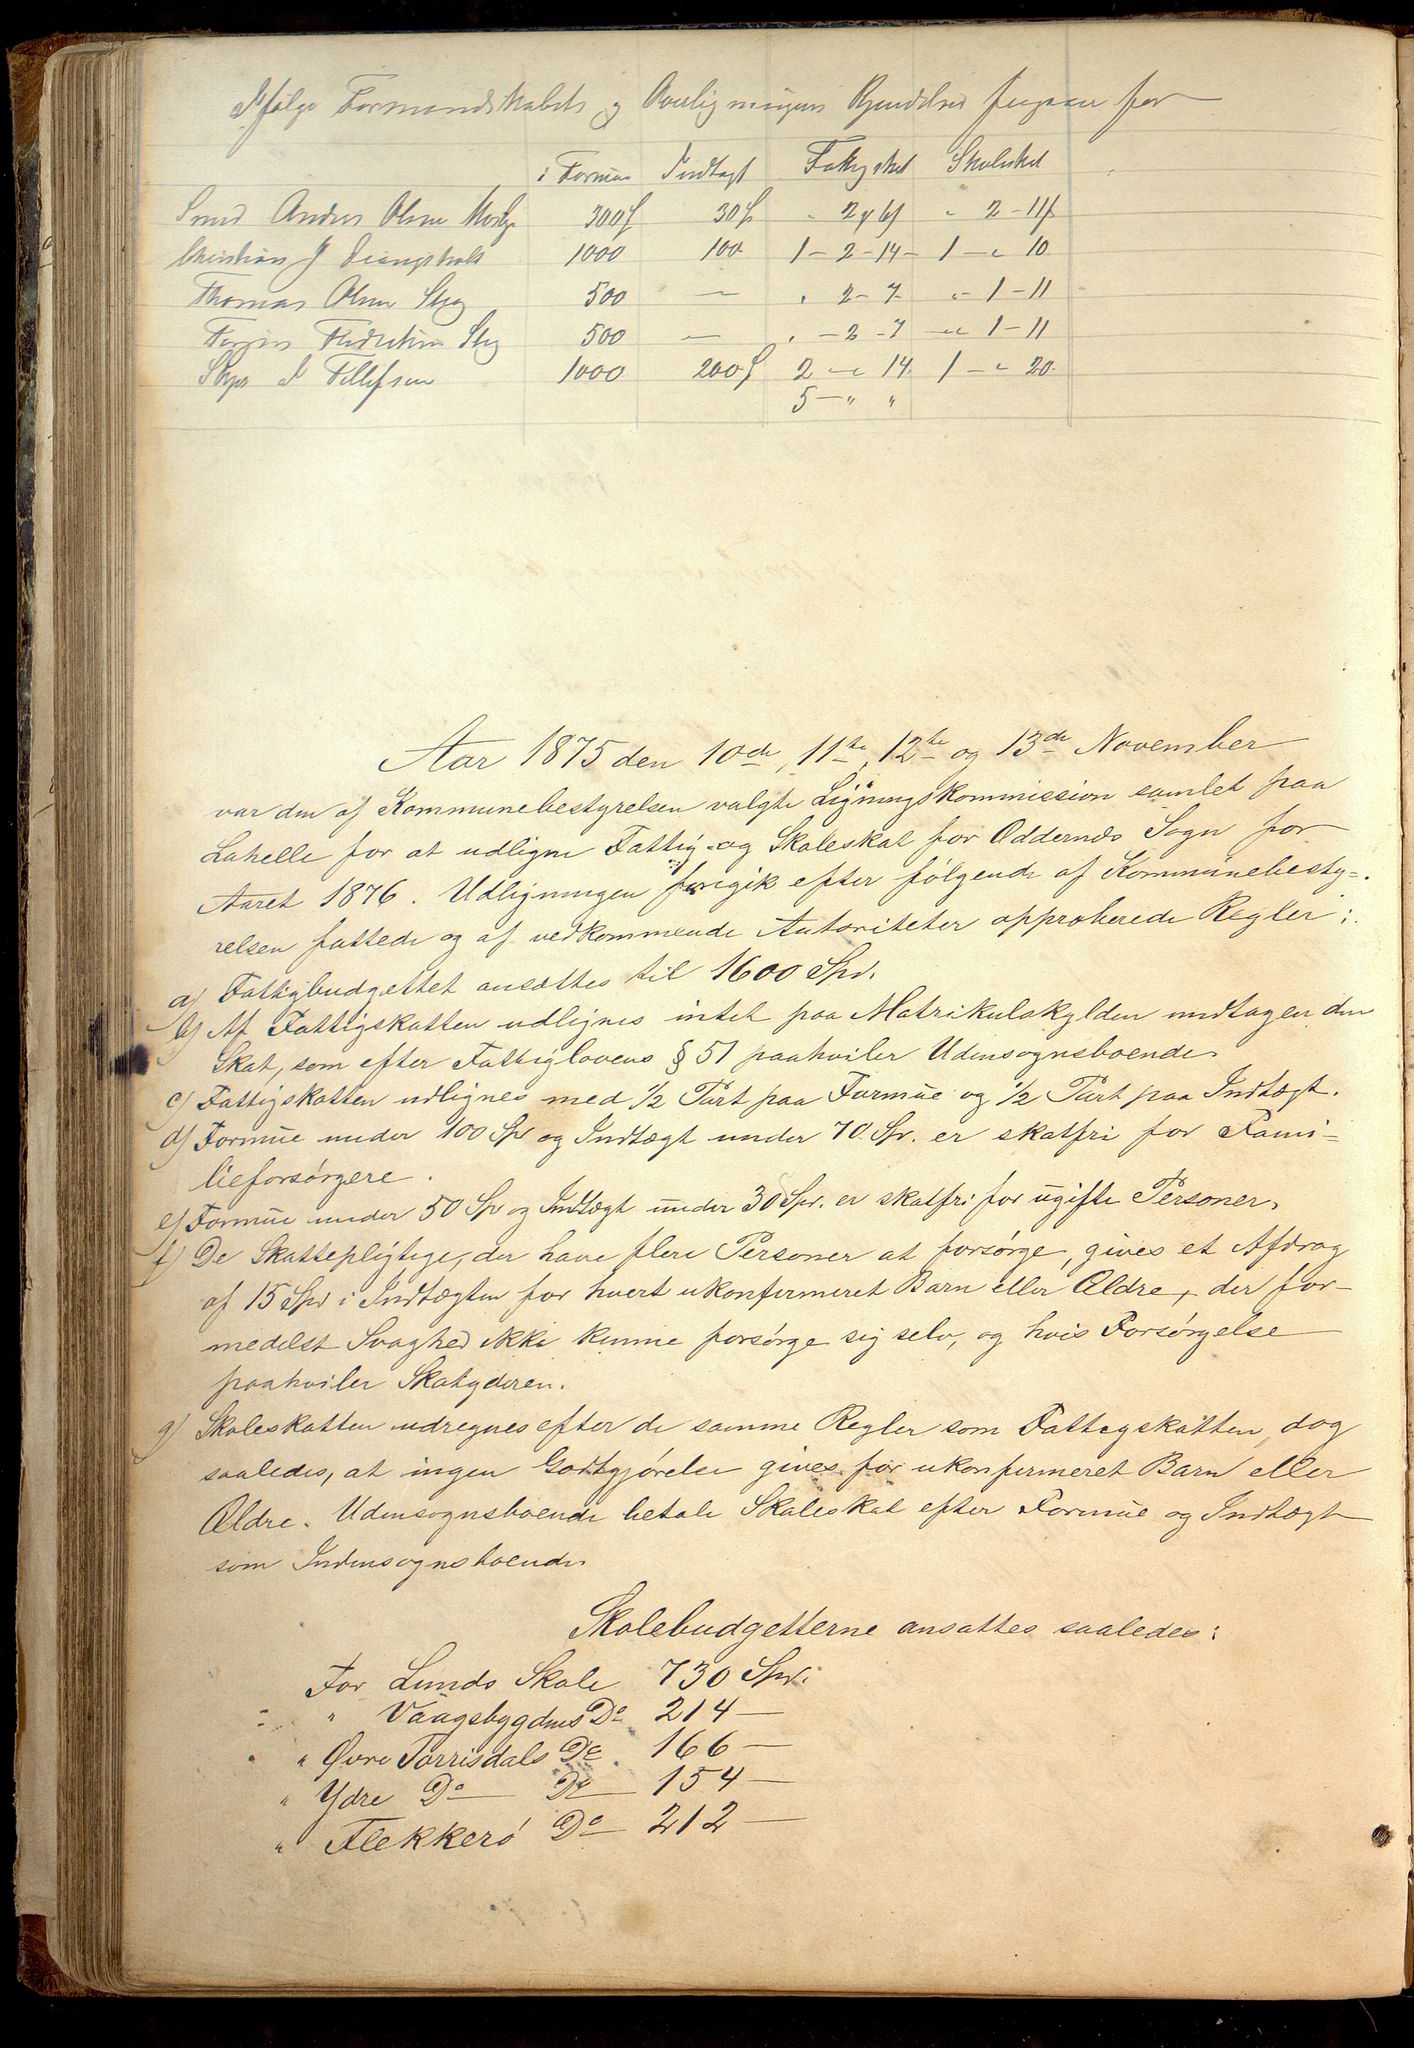 Ifølge Formandskabets og Overligningens Kjendelse fragaar for
i Formue Indtægt Fattigskat Skoleskat
Smed Anders Olsen 300 30 " 2 " 2 - 11
Christian J 1000 100 1 - 2 - 14 - 1 - " 10
Thomas Olsen Steg 500 — " 2 - 7 - " - 1 - 11
Fredriksen Steg 500 — " - 2 - 7 - " 1 - 11
Tellefsen 1000 200 2 - " 14 1 - " 20
5 - " "
Aar 1875 den 10de, 11te, 12te og 13de November
var den af Kommunebestyrelsen valgte Ligningskommission samlet paa
Lahelle for at udligne Fattig- og Skoleskat for Oddernes Sogn for
Aaret 1876. Udligningen foregik efter følgende af Kommunebesty-
relsen fattede og af vedkommende Autoriteter approberede Regler:
a) Fattigbudgettet ansættes til 1600 Spd.
b) Af Fattigskatten udlignes intet paa Matrikulskylden undtagen den
Skat, som efter Fattiglovens § 51 paahviler Udensognsboende.
c) Fattigskatten udlignes med 1/2 Part paa Formue og 1/2 Part paa Indtægt.
d) Formue under 100 Spd og Indtægt under 70 Spd. er skatfri for Fami-
lieforsørgere.
e) Formue under 50 Spd og Indtægt under 30 Spd. er skatfri for ugifte Personer.
f) De Skattepligtige, der have flere Personer at forsørge, gives et Afdrag
af 15 Spd i Indtægten for hvert ukonfirmeret Barn eller Ældre, der for-
medelst Svaghed ikke kunne forsørge sig selv, og hvis Forsørgelse
paahviler Skatyderen.
g) Skoleskatten udregnes efter de samme Regler som Fattigskatten, dog
saaledes, at ingen Godtgjørelse gives for ukonfirmeret Barn eller
Ældre. Udensognsboende betale Skoleskat efter Formue og Indtægt
som Indensognsboende.
Skolebudgetterne ansattes saaledes:
For Lunds Skole 730 Spd.
" Vaagsbygdens Do 214 —
" Øvre Torrisdals Do 166 —
" Ydre Do Do 154 —
" Flekkerø Do 212 —